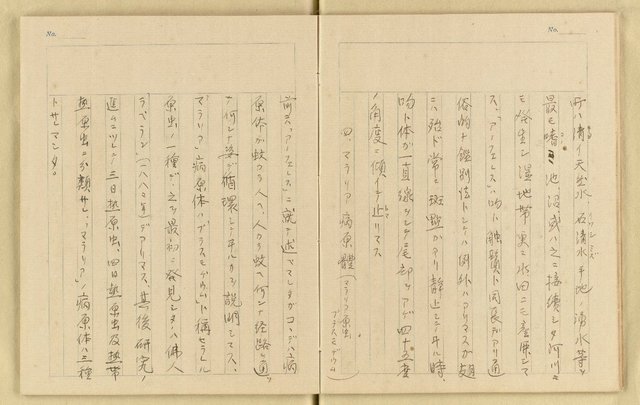 No.
所ハ清イ天然水、石清水平地ノ湧水等ヲ
最モ嗜ミ池、沼或ハ之ニ接続シタ河川ニ
モ発生シ湿地帯並ニ水田ニモ産卵シテ
ス、「アノフェレス」ハ吻ト触鬚ト同長デアリ通
俗的ト鑑別法トシテハ例外ハアリマスガ翅
ニハ殆ド常ニ斑點ガアリ静止シテヰル時、
吻ト体ガ一直線ヲシテ尾部ヲアゲ四十五度
ノ角度ニ傾イテ止リマス
四、マラリア病原體(マラリア原虫、プラスモヂウム)
No.
前ニ「アノフェレス」ニ就テ述ベマシタガコンドハ病
原体ガ蚊カラ人ヘ、人カラ蚊ヘ何ンナ経路ヲ通ッ
テ何ンナ姿デ循環シテヰルカヲ説明シマス、
マラリア病原体ハプラスモヂウムト稱セラレル
原虫ノ一種デ之ヲ最初ニ発見シタノハ佛人
「ラベラン」(一八八〇年)デアリマス、其後研究ノ
進ムニツレテ三日熱原虫、四日熱原虫及熱帯
熱原虫ニ分類サレ「マラリア」ノ病原体ハ三種
トサレマシタ。